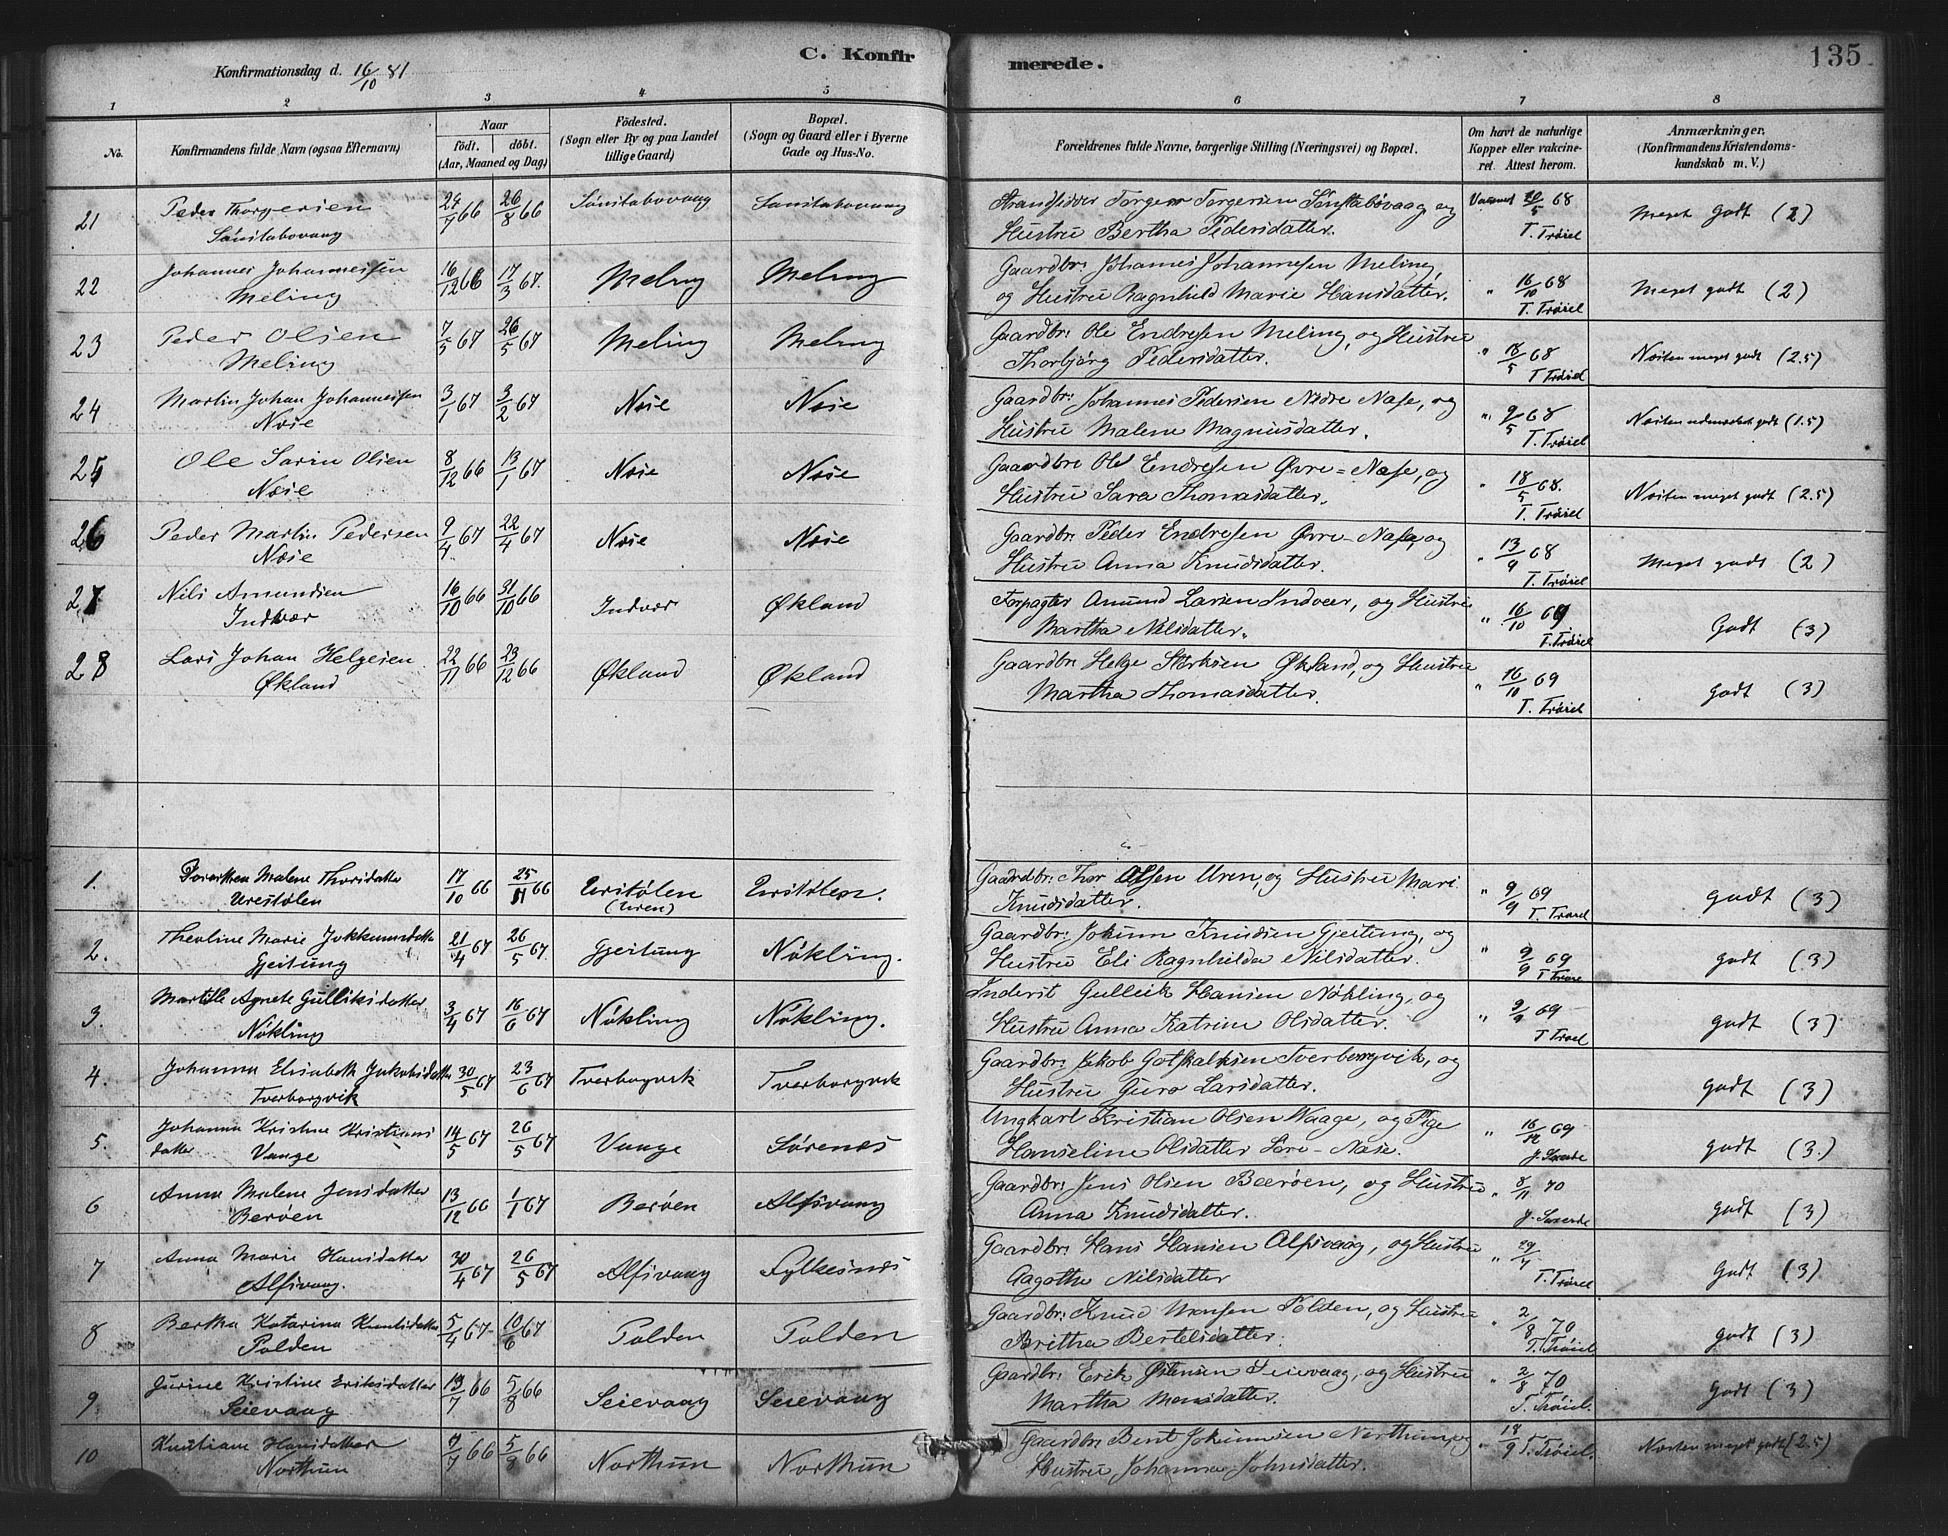 C. Konfirmerede.
135
Konfirmationsdag d. 16/10 81
1 2 3 4 5 6 7 8
No.
Konfirmandens fulde Navn (ogsaa Efternavn)
Naar
födt. döbt.
(Aar, Maaned og Dag)
Födested.
(Sogn eller By og paa Landet
tillige Gaard)
Bopæl.
(Sogn og Gaard eller i Byerne
Gade og Hus-No.
Forældrenes fulde Navne, borgerlige Stilling (Næringsvei) og Bopæl.
Om havt de naturlige
Kopper eller vakcine-
ret. Attest herom.
Anmærkninger.
(Konfirmandens Kristendoms-
kundskab m. V.)
21 Peder Thorgersen 24/7 66 26/8 66 Strandsidder Torger Torgersen og 68
Hustru Bertha Pedersdatter. T. Trøiel Meget Godt (2)
22 Johannes Johannessen 16/12 66 17/3 67. Meling Meling Gaardbr: Johannes Johannesen Meling,
Meling og Hustru Ragnhild Marie Hansdatter. " 16/10 68 T. Trøiel Meget godt (2)
23 Peder Olsen 67 26/5 67 Meling Meling Gaardbr: Ole Endresen Meling, og Hustru
Meling Thorbjørg Pedersdatter. " 18/5 68 T Trøiel Næsten meget godt (2.5)
24 Martin Johan Johannessen 3/1 67 3/2 67 Næse Næse Gaardbr: Johannes Pedersen Nedre Næse, og
Næse Hustru Malene Magnusdatter. " 9/5 68 T. Trøiel Næsten udmærket godt (1.5)
25 Ole Sarin Olsen 8/12 66 13/1 67 Næse Næse Gaardbr: Ole Endresen Øvre-Næse, og
Næse Hustru Sara Thomasdatter. " 18/5 68. T. Trøiel Næsten meget godt (2.5)
26 Peder Martin Pedersen 9/4 67 22/4 67 Næse Næse Gaardbr: Peder Endresen Øvre-Næse, og
Næse Hustru Anna Knudsdatter. " 13/9 68 T. Trøiel Meget godt (2)
27 Nils Amundsen 16/10 66 31/10 66 Indvær Økland Forpagter Amund Larsen Indvær, og Hustru
Indvær Martha Nilsdatter. " 16/10 69 T. Trøiel Godt (3)
28 Lars Johan Helgesen 22/11 66 23/12 66 Økland Økland Gaardbr: Helge Størksen Økland, og Hustru
Økland Martha Thomasdatter. " 16/10 69 T. Trøiel Godt (3)
1. Malene Thorsdatter 17/10 66 25/11 66 Urestølen Urestølen. Gaardbr: Thor Olsen Uren, og Hustru Mari
Urestølen (Uren) Knudsdatter. " 9/9 69 T. Trøiel godt (3)
2. Theoline Marie 21/4 67 26/5 67. Gjeitung Nøkling. Gaardbr: Jokum Knudsen Gjeitung, og
Gjeitung Hustru Eli Ragnhilda Nilsdatter. " 9/9 69 godt (3)
3. Agnete Gulliksdatter 3/4 67 16/6 67 Nøkling Nøkling. Inderst Gulleik Hansen Nøkling, og
Nøkling Hustru Anna Katrine Olsdatter. " 9/9 69 godt (3)
4. Johanna Elisabeth Jakobsdatter 30/5 67 23/6 67 Tverborgvik Tverborgvik Gaardbr: Jakob Gotskalksen Tverborgvik, og
Tverborgvik Hustru Guro Larsdatter. godt (3)
5. Johanna Kristine Kristians 14/5 67 26/5 67 Vaage Sørenæs Ungkarl Kristian Olsen Waage, og Pige
datter Vaage Hanseline Olsdatter Søre-Næse. " 69 godt (3.)
6 Anna Malene Jensdatter 13/12 66 1/1 67 Berøen Alfsvaag Gaardbr: Jens Olsen Beerøen, og Hustru
Berøen Anna Knudsdatter. " 8/11 70 godt (3)
7 Anna Marie Hansdatter 30/4 67 26/5 67 Alfsvaag Fylkesnæs Gaardbr: Hans Hansen Alfsvaag, og Hustru
Alfsvaag. Aagotha Nilsdatter " T. Trøiel Godt (3)
8 Bertha Katarina Knutsdatter 5/4 67 10/6 67 Polden Polden Gaardbr: Knud Monsen Polden, og Hustru
Polden Britha Bertelsdatter. " 2/8 70 T. Trøiel godt (3)
9 Gurine Kristine Eriksdatter 66 5/8 66 Seievaag Seievaag Gaardbr: Erik Østensen Seievaag, og Hustru
Seievaag Martha Monsdatter. " 2/8 70 T. Trøiel. Godt (3)
10 Kristiane Hansdatter 66 66 Northun Northun Gaardbr: Bent Northun, og
Northun Hustru Johanna Johnsdatter. " 18/9 T. Trøiel Næsten meget godt (2.5)